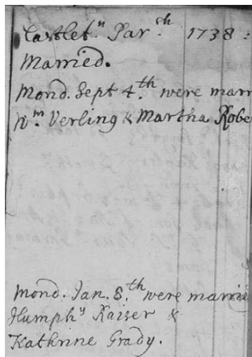 Castletn. Parsh. 1738:
Married.
Mond. Sept 4.th were marr
Wm. Verling & Martha Robe
Mond. Jan. 8.th were marrie
Humphy Kaiser &
Kathrine Grady.